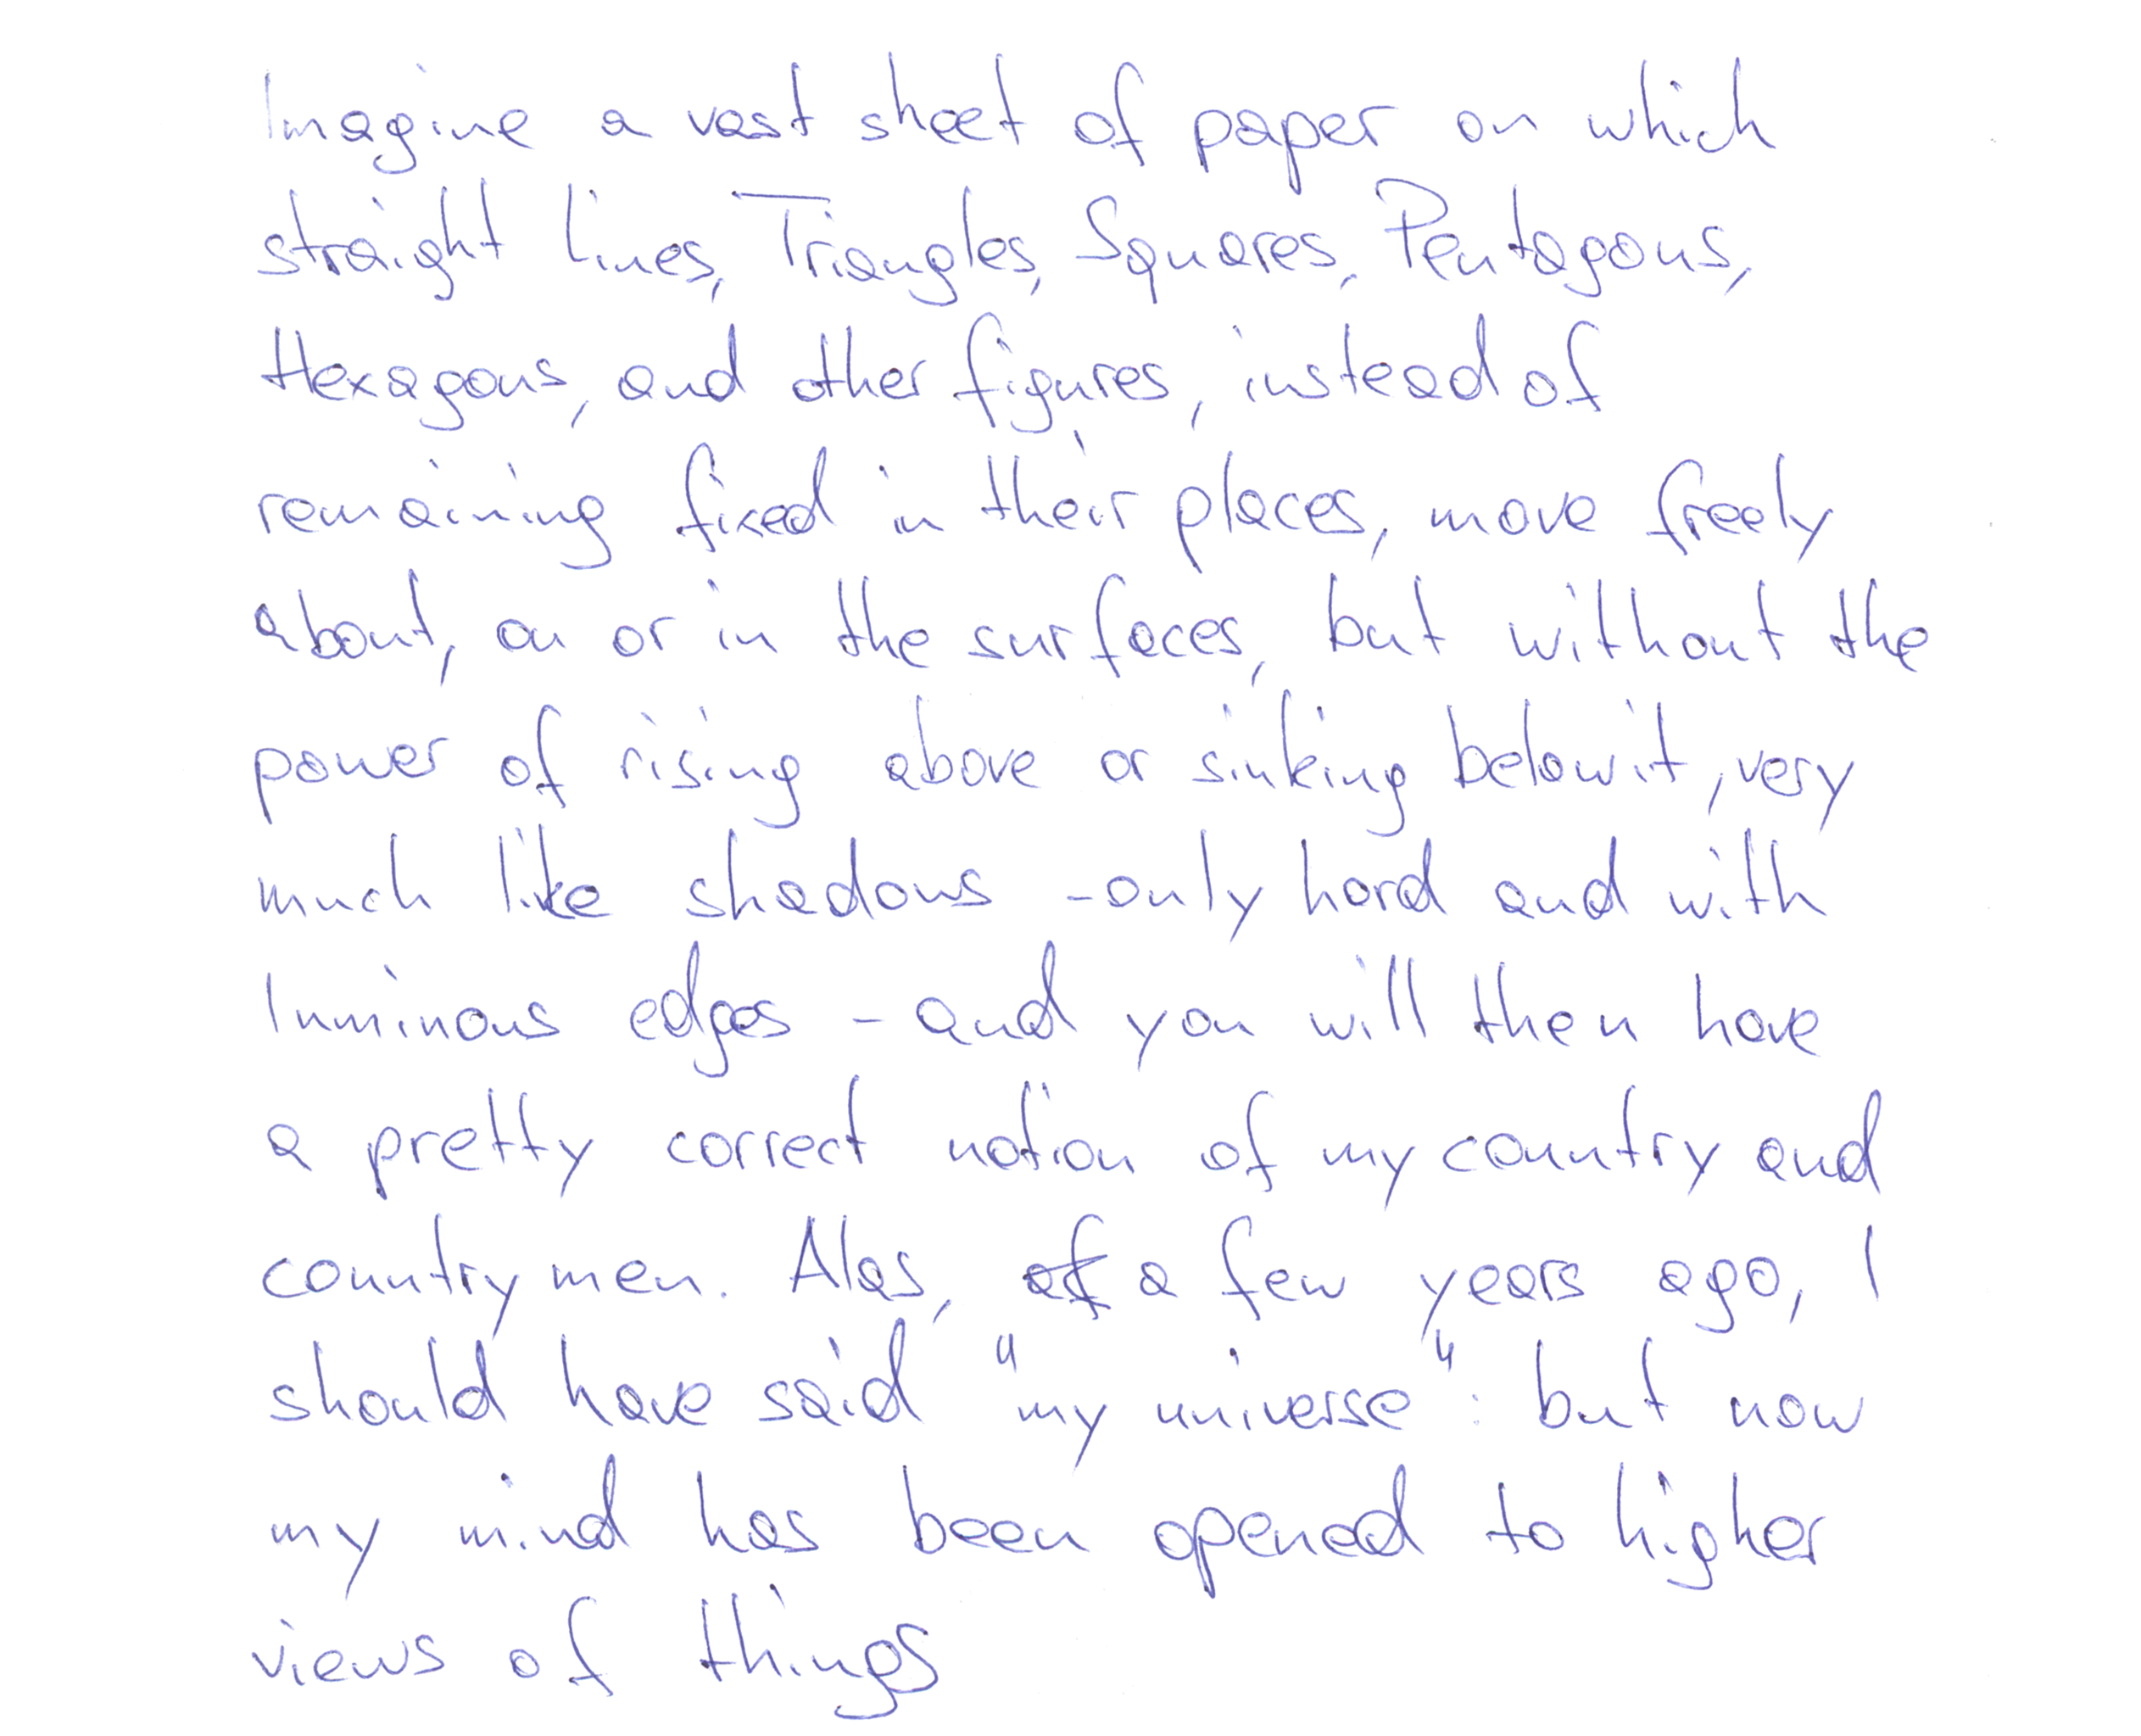 Imagine a vast sheet of paper on which
straight Lines, Triangles, Squares, Pentagons,
Hexagons, and other figures, instead of
remaining fixed in their places, move freely
about, on or in the surfaces, but without the
power of rising above or sinking below it, very
much like shadows - only hard and with
luminous edges - and you will then have
a pretty correct notion of my country and
countrymen. Alas, a few years ago, I
should have said "my universe": but now
my mind has been opened to higher
views of things